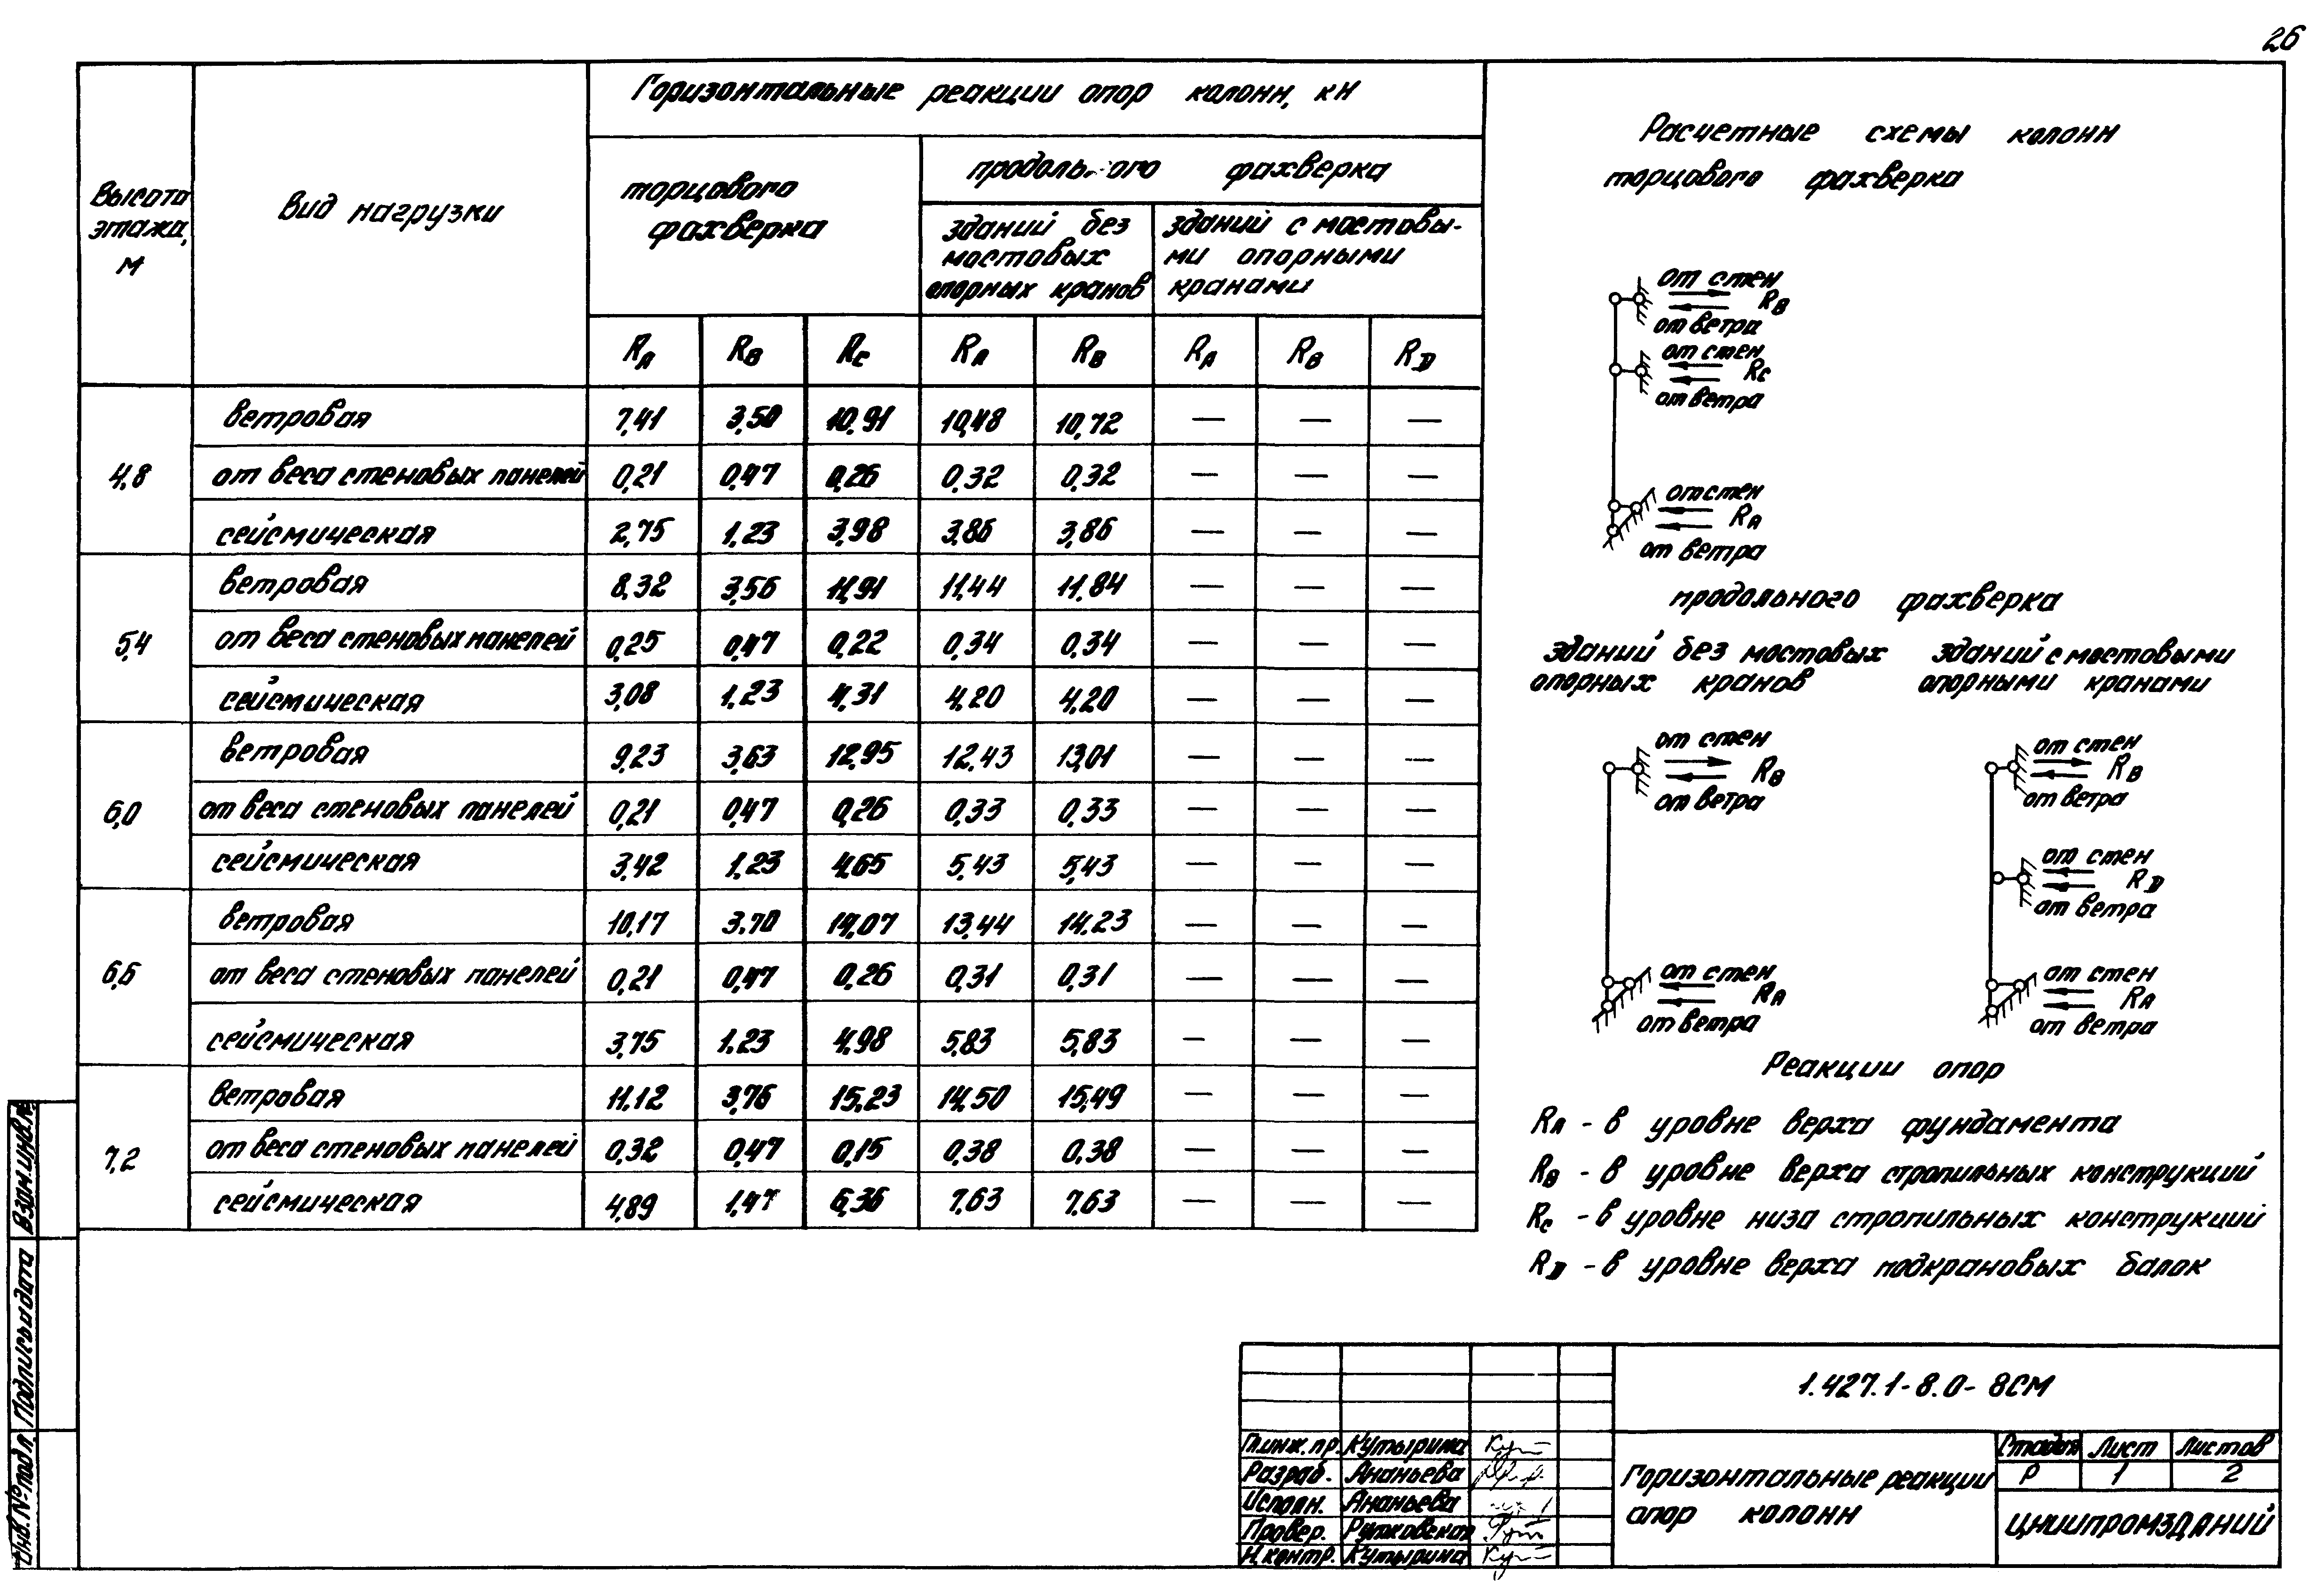 26
Высота этажа, м
Вид нагрузки
Горизонтальные реакции опор колонн, кН
торцового фахверка
продольного фахверка
зданий без мостовых опорных кранов
зданий с мостовы-ми опорными кранами
RA RB RC RA RB RA RB RD
4,8
ветровая 7,41 3,50 10,91 10,48 10,72 — — —
от веса стеновых панелей 0,21 0,47 0,26 0,32 0,32 — — —
сейсмическая 2,75 1,23 3,98 3,86 3,86 — — —
5,4
ветровая 8,32 3,56 11,91 11,44 11,84 — — —
от веса стеновых панелей 0,25 0,47 0,22 0,34 0,34 — — —
сейсмическая 3,08 1,23 4,31 4,20 4,20 — — —
6,0
ветровая 9,23 3,63 12,95 12,43 13,01 — — —
от веса стеновых панелей 0,21 0,47 0,26 0,33 0,33 — — —
сейсмическая 3,42 1,23 4,65 5,43 5,43 — — —
6,6
ветровая 10,17 3,70 14,07 13,44 14,23 — — —
от веса стеновых панелей 0,21 0,47 0,26 0,31 0,31 — — —
сейсмическая 3,75 1,23 4,98 5,83 5,83 — — —
7,2
ветровая 11,12 3,76 15,23 14,50 15,49 — — —
от веса стеновых панелей 0,32 0,47 0,15 0,38 0,38 — — —
сейсмическая 4,89 1,47 6,36 7,63 7,63 — — —
Расчетные схемы колонн
торцового фахверка
от стен
RB
от ветра
от стен
RC
от ветра
от стен
RA
от ветра
продольного фахверка
зданий без мостовых
опорных кранов
от стен
RB
от ветра
от стен
RA
от ветра
зданий с мостовыми
опорными кранами
от стен
RB
от ветра
от стен
RD
от ветра
от стен
RA
от ветра
Реакции опор
RA - в уровне верха фундамента
RB - в уровне верха стропильных конструкций
RC - в уровне низа стропильных конструкций
RD - в уровне верха подкрановых балок
1.427.1-8.0-8СМ
Гл.инж.пр. Кутырина
Разраб. Ананьева
Исполн. Ананьева
Провер. Рутковская
Н.контр. Кутырина
Горизонтальные реакции
опор колонн
Стадия Лист Листов
Р 1 2
ЦНИИПРОМЗДАНИЙ
Инв.№подл. Подпись и дата Взам.инв.№